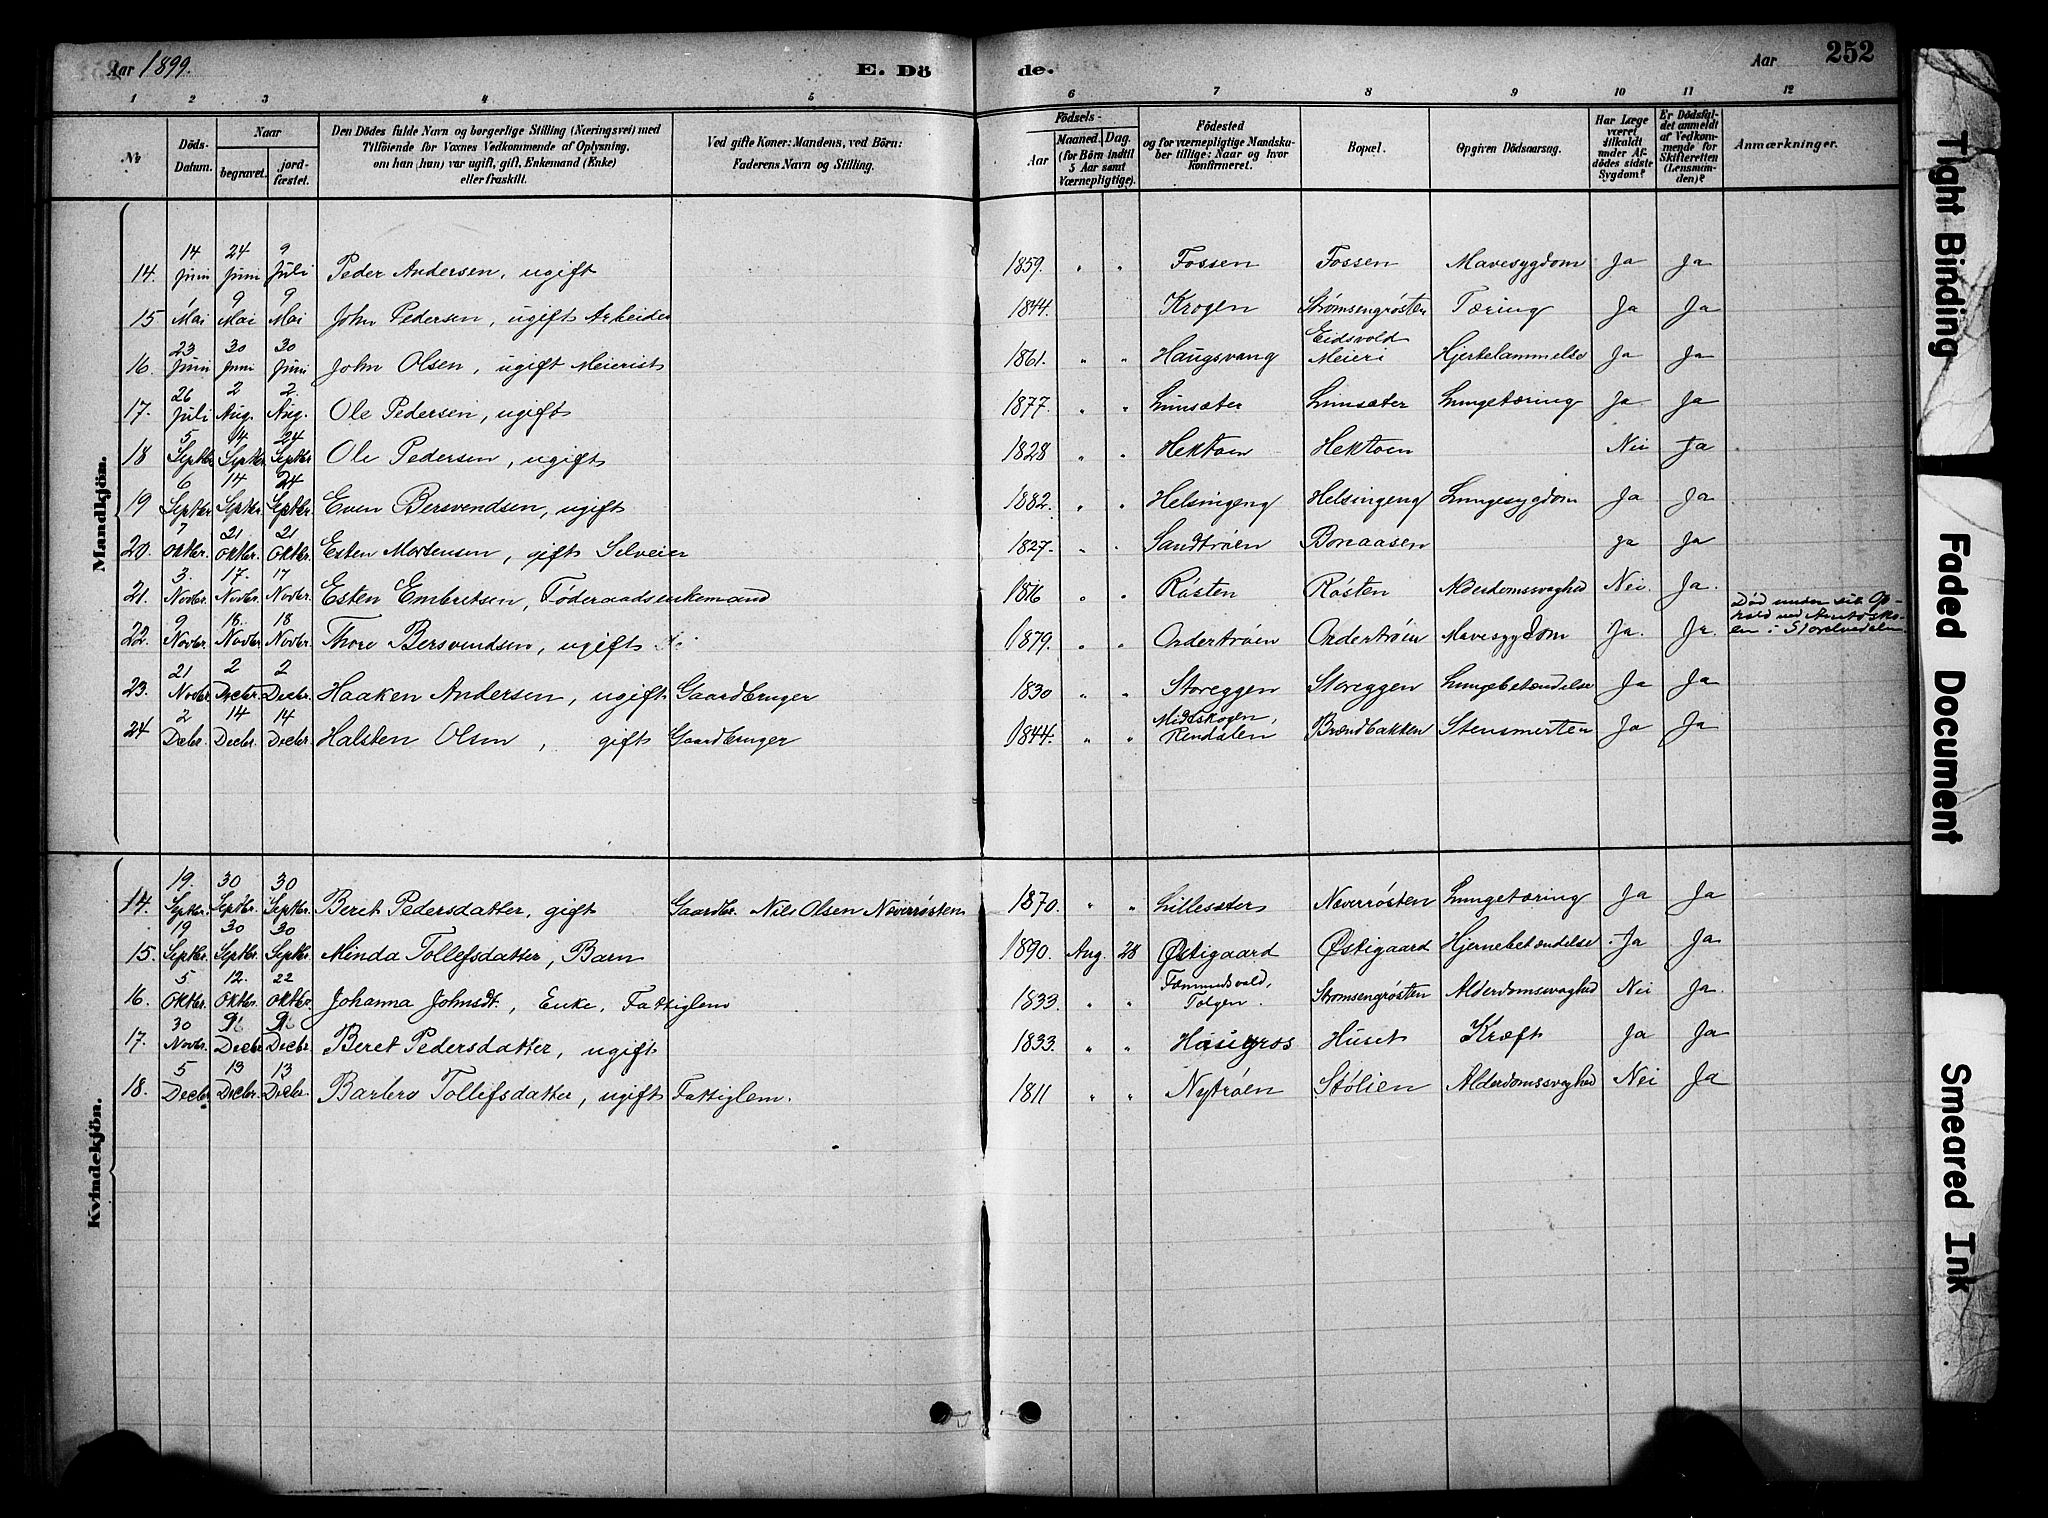 Aar 1899. E. Dö de. Aar 252
1 2 3 4 5 6 7 8 9 10 11 12
No
Döds-Datum.
Naar
begravet.
jordfæstet.
Den Dödes fulde Navn og borgerlige Stilling (Næringsvei) med Tilföiende for Voxnes Vedkommende af Oplysning, om han (hun) var ugift, gift, Enkemand (Enke) eller fraskilt.
Ved gifte Koner: Mandens, ved Börn: Faderens Navn og Stilling.
Födsels-
Aar
Maaned. Dag.
(for Börn indtil 5 Aar samt Værnepligtige).
Födested og for værnepligtige Mandskaber tillige: Naar og hvor konfirmeret.
Bopæl.
Opgiven Dödsaarsag.
Har Læge været tilkaldt under Afdödes sidste Sygdom?
Er Dödsfaldet anmeldt af Vedkommende for Skifteretten (Lensmanden)?
Anmærkninger.
Mandkjön.
14. 14 Juni 24 Juni 9 Juli Peder Andersen, ugift 1859. " " Fossen Fossen Mavesygdom Ja Ja
15 Mai 9 Mai 9 Mai John Pedersen, ugift Arbeider 1844. Krogen Strømsengrøsten Tæring Ja Ja
16. 23 Juni 30 Juni 30 Juni John Olsen, ugift Meierist 1861. " " Haugsvang Eidsvold Meieri Hjertelammelse Ja Ja
17. 26 Juli 2 Aug. 2. Aug. Ole Pedersen, ugift 1877. " " Lunsæter Lunsæter Lungetæring Ja Ja
18 5 Septbr. 14 Septbr. 24 Septbr Ole Pedersen, ugift 1828 " " Hektoen Hektoen Nei Ja
19 6 Septbr 14 Septbr. 24 Septbr. Even Bersvendsen, ugift 1882. " " Helsingeng Helsingeng Lungesygdom Ja Ja
20. 7 Oktbr. 21 Oktbr. 21 Oktbr. Esten Mortensen, gift Selveier 1827. " " Sandtrøen Bonaasen ja Ja
21. 3. Novbr. 17. Novbr. 17 Novbr. Esten Embretsen, Føderaadsenkemand 1816 " " Røsten Røsten Alderdomssvaghed Nei Ja.
22. 9 Novbr. 18. Novbr. 18 Novbr. Thore Bersvendsen, ugift 1879. " " Ordertrøen Ordertrøen Mavesygdom Ja. Ja. Død under sit Ophold ved Amtsskolen i Storelvedalen
23. 21 Novbr. 2 Decbr. 2 Decbr. Haaken Andersen, ugift Gaardbruger 1830 " " Storeggen Storeggen Lungebetændelse Ja Ja
24 2 Decbr. 14 Decbr. 14 Decbr. Halsten Olsen, gift Gaardbruger 1844. " " Midtskogen, Rendalen Brændbakken Stensmerter Ja Ja
Kvindekjön.
14. 19. Septbr. 30 Septbr. 30 Septbr. Beret Pedersdatter, gift Gaardbr. Nils Olsen Nøverrøsten 1870. " " Lillesæter Nøverrøsten Lungetæring Ja Ja
15. 19 Septbr. 30 Septbr. 30 Septbr. Minda Tollefsdatter, Barn 1890. Aug. 28 Østigaard Østigaard Hjernebetændelse Ja Ja
16. 5 Oktbr. 12. Oktbr. 22 Oktbr. Johanna Johnsdt., Enke, Fattiglem 1833. " " Fæmundsvold, Tolgen. Strømsengrøsten Alderdomssvaghed Nei Ja.
17. 30 Novbr. Decbr Decbr. Beret Pedersdatter, ugift 1833. " " Huset Kræft Ja Ja
18. 5 Decbr. 13 Decbr. 13 Decbr. Barbro Tollefsdatter, ugift Fattiglem. 1811 " " Nytrøen Stølien Alderdomssvaghed Nei Ja
Tight Binding
Faded Document
Smeared Ink